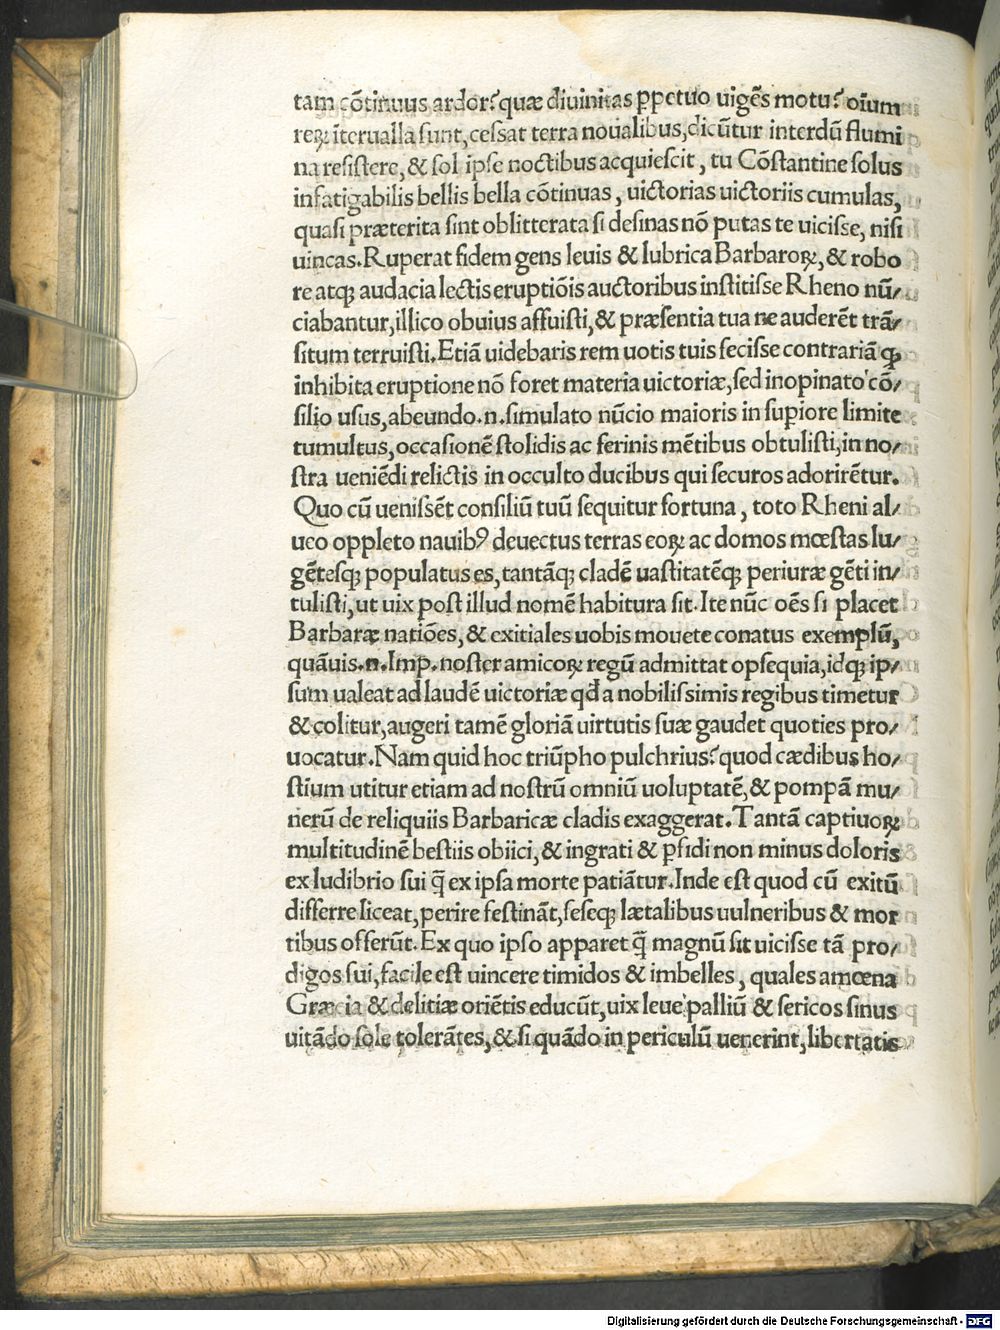 tam cõtinuus ardor? quæ diuinitas ꝑpetuo uigẽs motu? oĩum
reꝝ ĩterualla sunt, cessat terra noualibus, dicũtur interdũ flumi
na resistere, & sol ipse noctibus acquiescit, tu Cõstantine solus
infatigabilis bellis bella cõtinuas, uictorias uictoriis cumulas,
quasi præterita sint oblitterata si desinas nõ putas te uicisse, nisi
uincas. Ruperat fidem gens leuis & lubrica Barbaroꝝ, & robo
re atqꝫ audacia lectis eruptiõis auctoribus institisse Rheno nũ/
ciabantur, illico obuius affuisti, & præsentia tua ne auderẽt trã/
situm terruisti. Etiã uidebaris rem uotis tuis fecisse contrariã ꝙ
inhibita eruptione nõ foret materia uictoriæ, sed inopinato cõ/
silio usus, abeundo .n. simulato nũcio maioris in suꝑiore limite
tumultus, occasionẽ stolidis ac ferinis mẽtibus obtulisti, in no/
stra ueniẽdi relictis in occulto ducibus qui securos adorirẽtur.
Quo cũ uenissẽt consiliũ tuũ sequitur fortuna, toto Rheni al/
ueo oppleto nauibꝰ deuectus terras eoꝝ ac domos mœstas lu/
gẽtesqꝫ populatus es, tantãqꝫ cladẽ uastitatẽqꝫ periuræ gẽti in/
tulisti, ut uix post illud nomẽ habitura sit. Ite nũc oẽs si placet
Barbaræ natiões, & exitiales uobis mouete conatus exemplũ,
quãuis .n. Imp. noster amicoꝝ regũ admittat opsequia, idqꝫ ip/
sum ualeat ad laudẽ uictoriæ qđ a nobilissimis regibus timetur
& colitur, augeri tamẽ gloriã uirtutis suæ gaudet quoties pro/
uocatur. Nam quid hoc triũpho pulchrius? quod cædibus ho/
stium utitur etiam ad nostrũ omniũ uoluptatẽ, & pompã mu/
nerũ de reliquiis Barbaricæ cladis exaggerat. Tantã captiuoꝝ
multitudinẽ bestiis obiici, & ingrati & ꝑfidi non minus doloris
ex ludibrio sui q̃ ex ipsa morte patiãtur. Inde est quod cũ exitũ
differre liceat, perire festinãt, seseqꝫ lætalibus uulneribus & mor
tibus offerũt. Ex quo ipso apparet q̃ magnũ sit uicisse tã pro/
digos sui, facile est uincere timidos & imbelles, quales amœna
Græcia & delitiæ oriẽtis educũt, uix leue palliũ & sericos sinus
uitãdo sole tolerãtes, & si quãdo in periculũ uenerint, libertatis
Digitalisierung gefördert durch die Deutsche Forschungsgemeinschaft - DFG